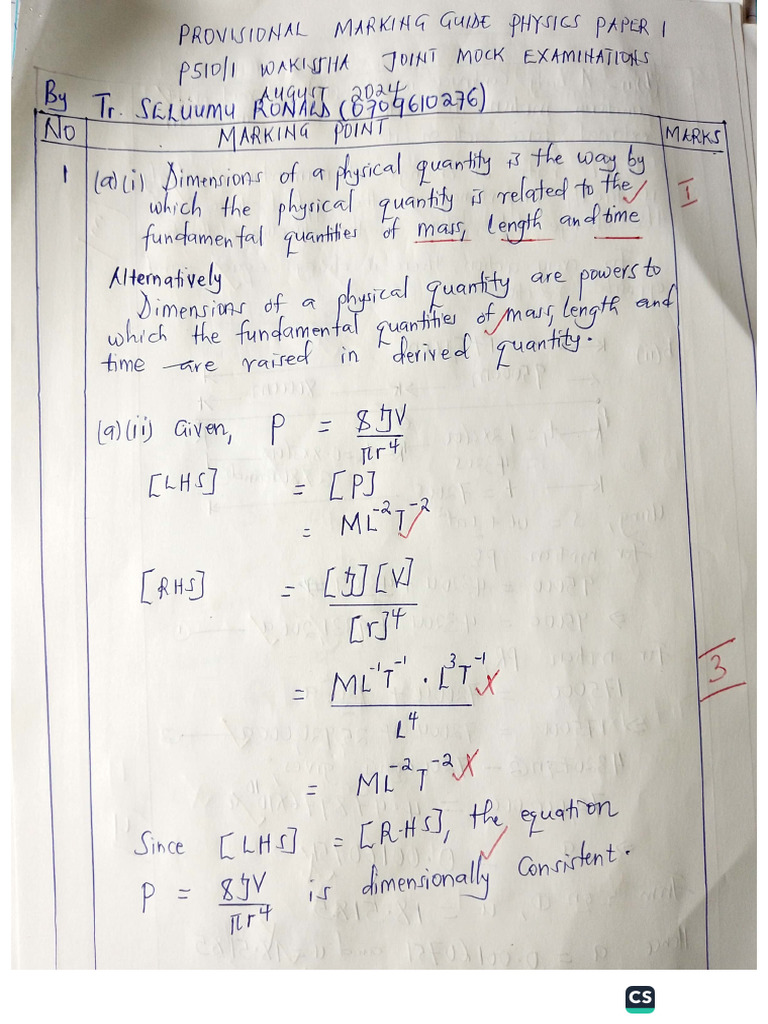 PROVISIONAL MARKING GUIDE PHYSICS PAPER 1
P510/1 WAKISSHA JOINT MOCK EXAMINATIONS
AUGUST 2024
By Tr. SSLUUMU RONALD (0709610276)
No MARKING POINT MARKS
1 (a)(i) Dimensions of a physical quantity is the way by
which the physical quantity is related to the ✓ 1
fundamental quantities of mass, length and time
Alternatively
Dimensions of a physical quantity are powers to
which the fundamental quantities of mass, length and
time are raised in derived quantity.
(a)(ii) Given, P = 8ηV/πr⁴
[LHS] = [P]
= ML⁻²T⁻²
[RHS] = [η][V]/[r]⁴
= ML⁻¹T⁻¹ · L³T⁻¹/L⁴
3
= ML⁻²T⁻²
Since [LHS] = [R.HS], the equation
P = 8ηV/πr⁴ is dimensionally consistent.
CS